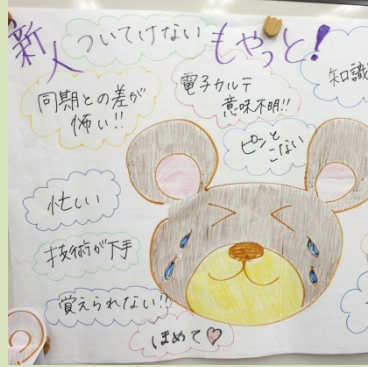 新人ついてけない もやっと!
同期との差が
怖い!!
電子カルテ
意味不明!!
知識
ピンと
こない
忙しい
技術が下手
覚えられない!!
ほめて♡